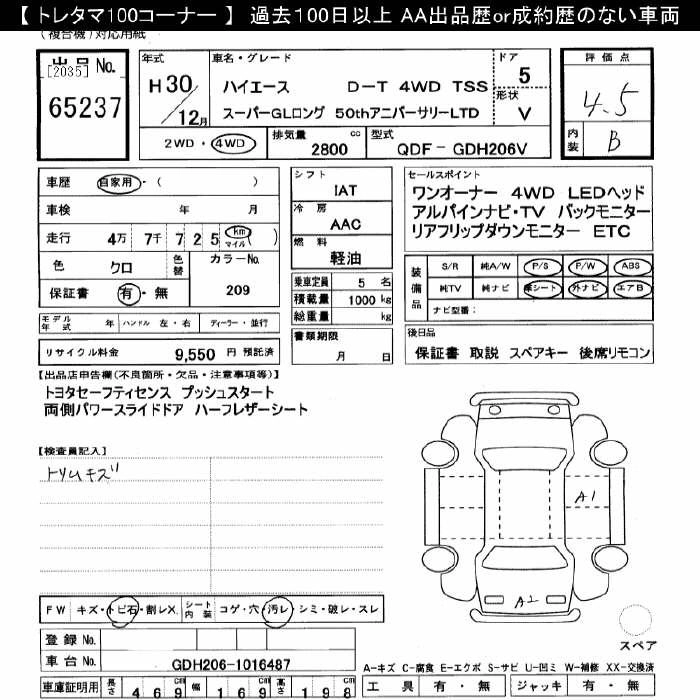 【 トレタマ100コーナー 】 過去100日以上 AA出品歴or成約歴のない車両
(複合機)対応用紙
出品 No.
[2035]
65237
年式
H30/12月
車名・グレード
ハイエース D-T 4WD TSS
スーパーGLロング 50thアニバーサリーLTD
ドア
5
形状
V
評価点
4.5
内装
B
2WD・4WD
排気量 cc
2800
型式
QDF- GDH206V
車歴 自家用・( )
車検 年 月
走行 4万 7千 7 2 5 km マイル ( )
色 クロ 色替 カラーNo.
保証書 有・無 209
モデル年式 年 ハンドル 左・右 ディーラー・並行
リサイクル料金 9,550 円 預託済
シフト
IAT
冷房
AAC
燃料
軽油
乗車定員 5 名
積載量 1000 kg
総重量 kg
書類期限
月 日
セールスポイント
ワンオーナー 4WD LEDヘッド
アルパインナビ・TV バックモニター
リアフリップダウンモニター ETC
装備品
S/R 純A/W P/S P/W ABS
純TV 純ナビ 革シート 外ナビ エアB
ナビ型番:
後日品
保証書 取説 スペアキー 後席リモコン
【出品店申告欄(不良箇所・欠品・注意事項等)】
トヨタセーフティセンス プッシュスタート
両側パワースライドドア ハーフレザーシート
【検査員記入】
トリムキズ
A1
A2
スペア
FW キズ・トビ石・割レX シート内装 コゲ・穴・汚レ・シミ・破レ・スレ
登録 No.
車台 No. GDH206-1016487
車庫証明用 長さ 469 cm 幅 169 cm 高さ 198 cm
A-キズ C-腐食 E-エクボ S-サビ U-凹ミ W-補修 XX-交換済
工具 有・無 ジャッキ 有・無